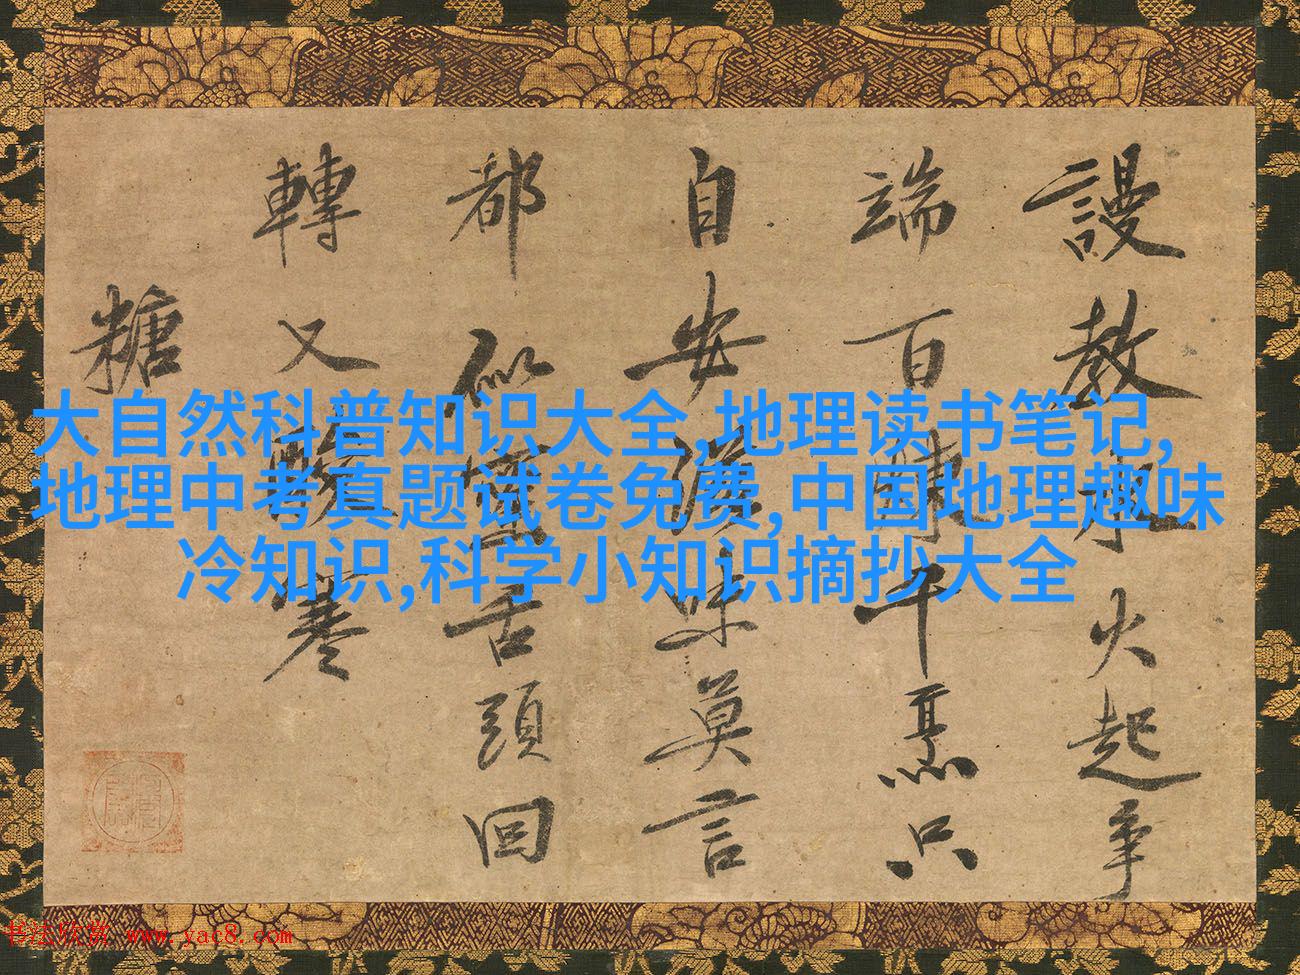 謾教水火起爭
端百鍊千熏只
自安滋味莫言
都似蜜舌頭回
轉又酸寒
糖
大自然科普知识大全,地理读书笔记,
地理中考真题试卷免费,中国地理趣味
冷知识,科学小知识摘抄大全
书法欣赏 www.yac8.com